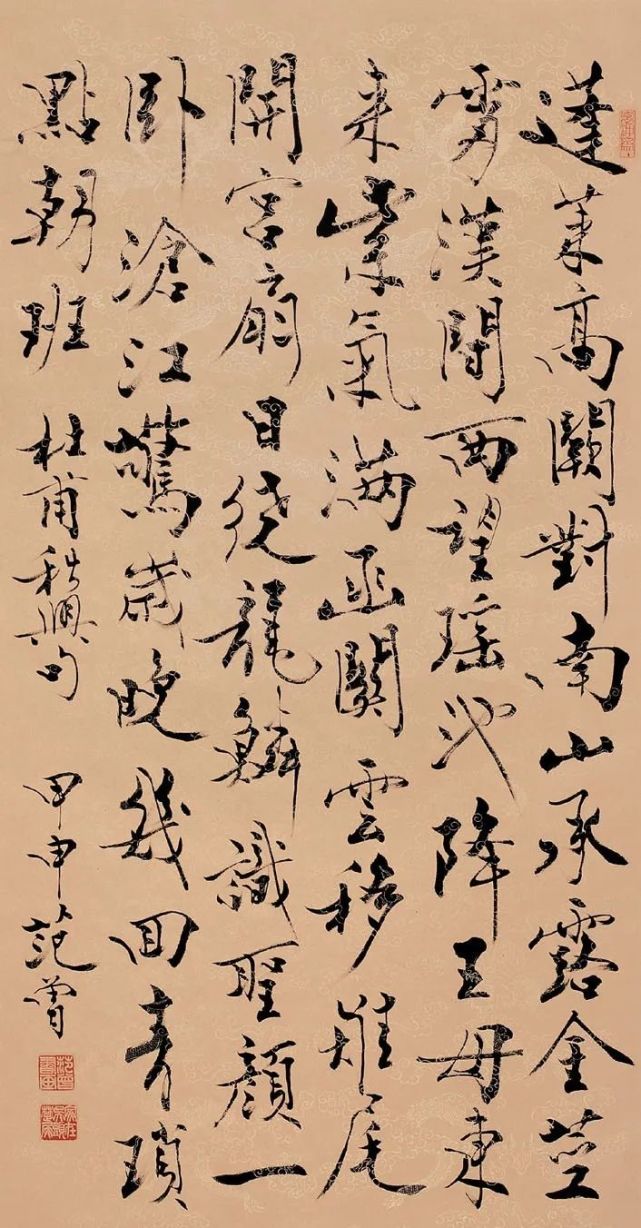 蓬萊高闕對南山承露金莖
霄漢間西望瑤池降王母東
来紫氣滿函關雲移雉尾
開宮扇日繞龍鱗識聖顏一
臥滄江驚歲晚幾回青瑣
點朝班 杜甫秋興句 甲申范曾